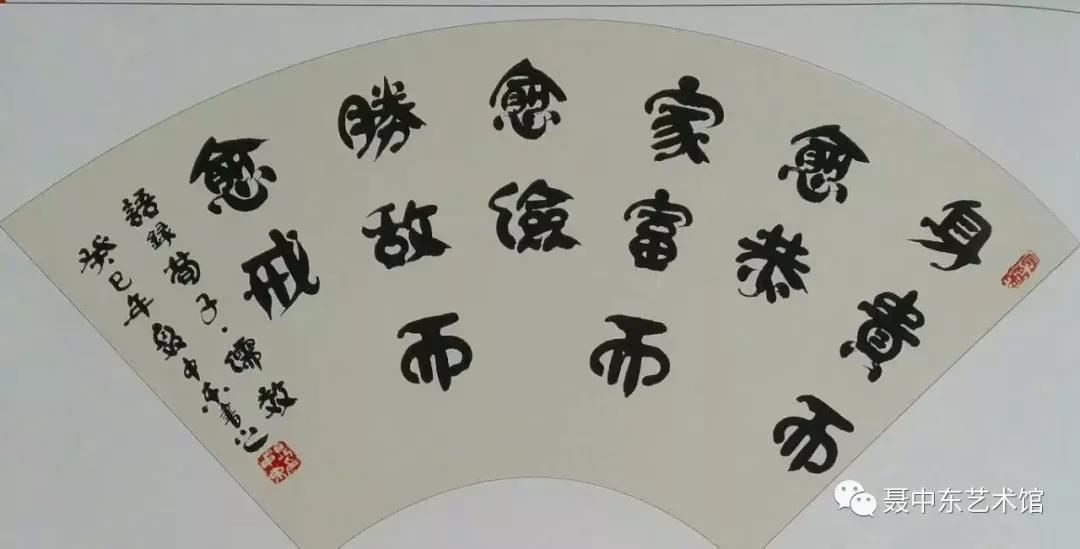 身貴而
愈恭
家富而
愈儉
勝敌而
愈戒
語録荀子·儒效
癸巳年聂中东書之
聂中东艺术馆